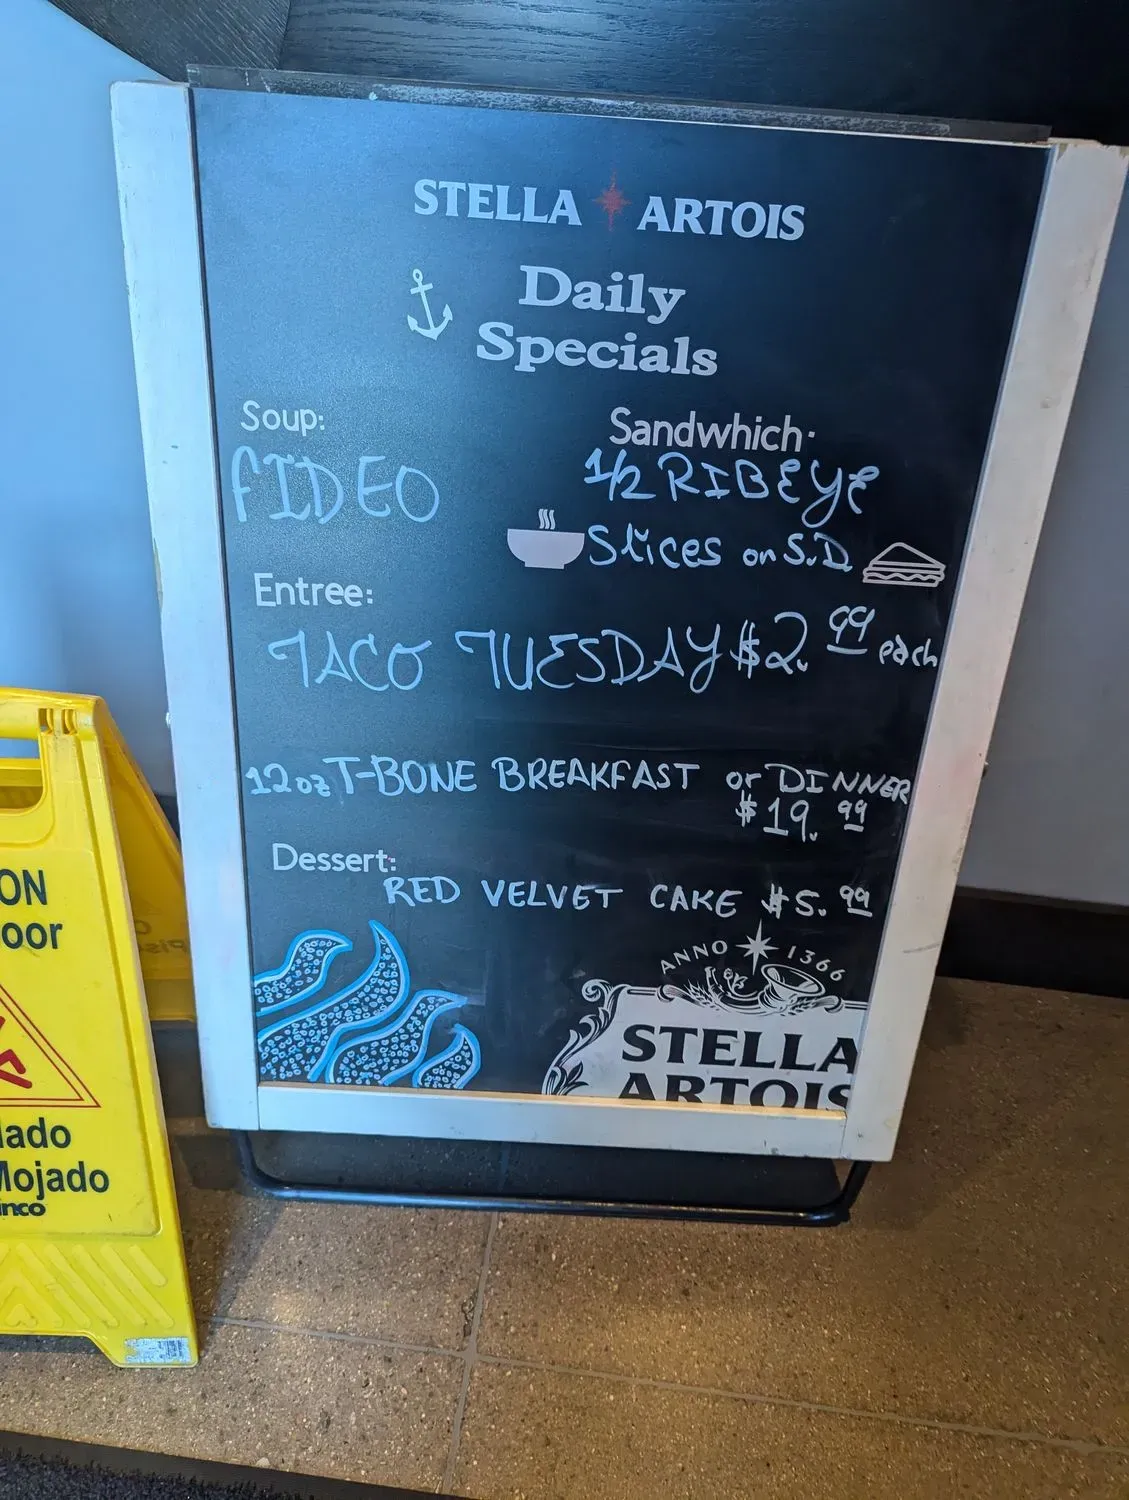 STELLA ARTOIS
Daily
Specials
Soup:
FIDEO
Sandwhich:
1/2 RIBEYE
Slices on S.D.
Entree:
TACO TUESDAY $2.99 each
12oz T-BONE BREAKFAST or DINNER
$19.99
Dessert:
RED VELVET CAKE $5.99
ANNO 1366
STELLA
ARTOIS
ON
oor
lado
Mojado
inco